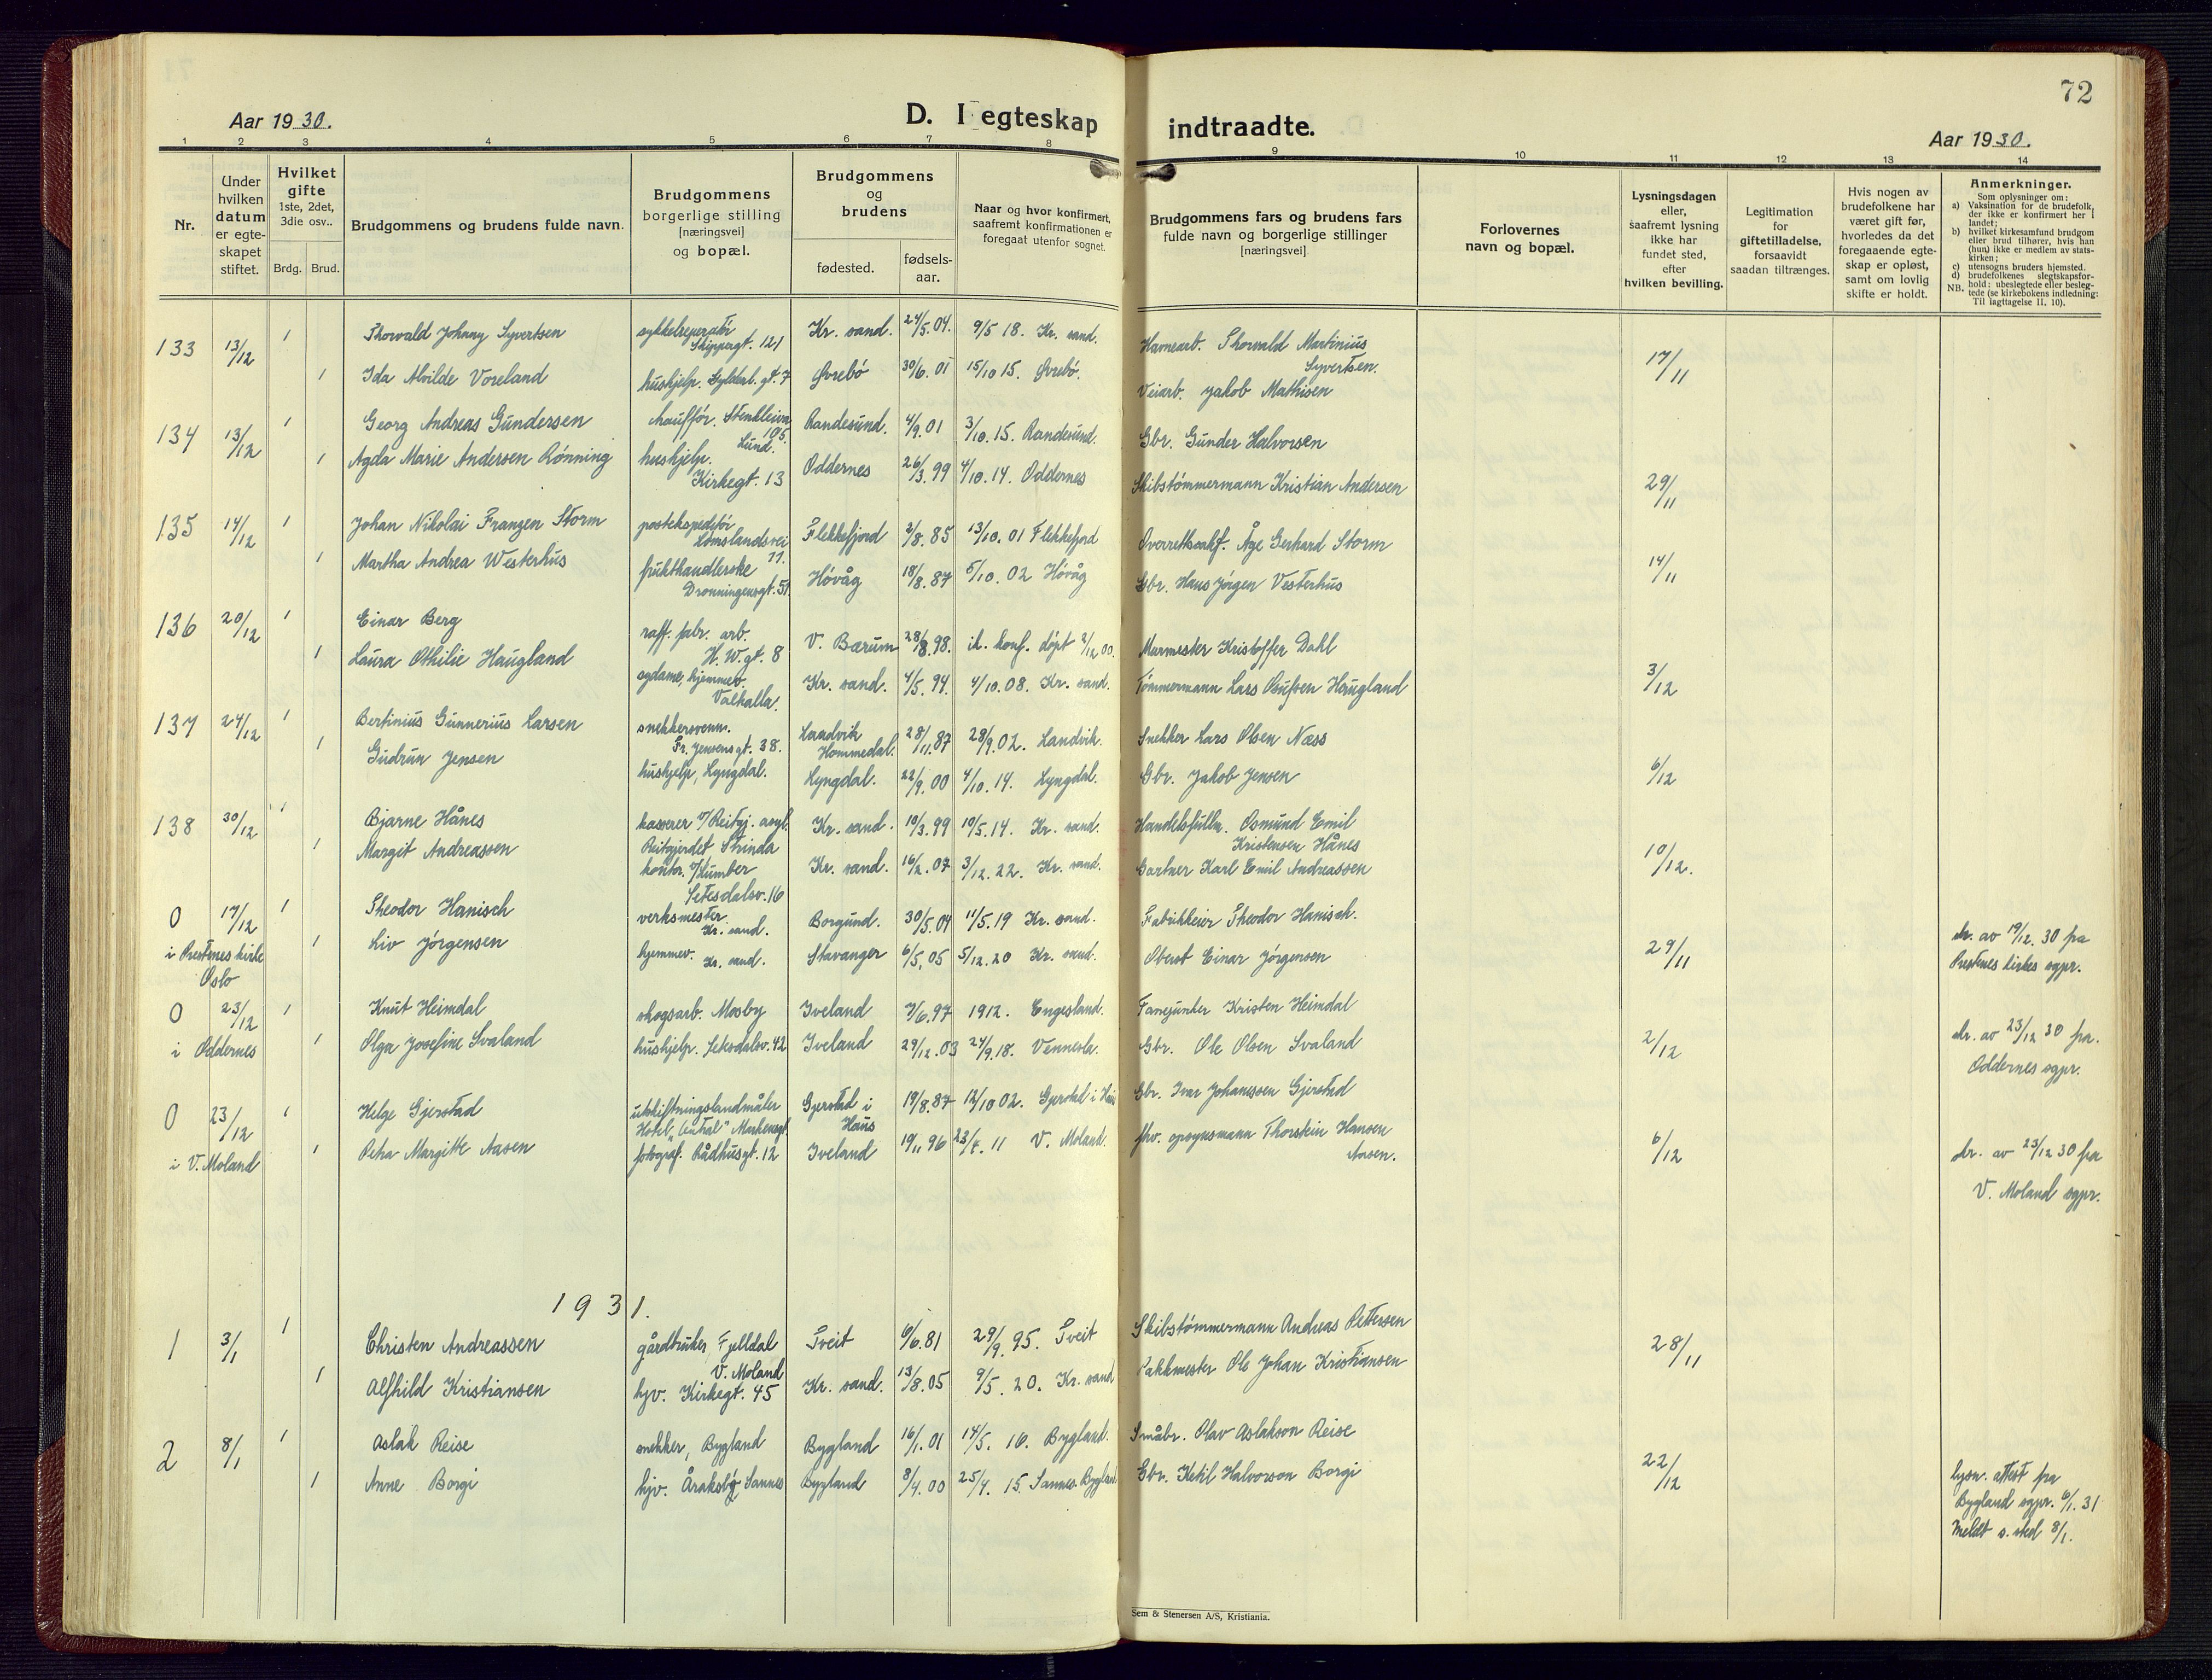 72
Aar 1930.
D. I egteskap indtraadte.
Aar 1930.
1 2 3 4 5 6 7 8 9 10 11 12 13 14
Nr.
Under hvilken datum er egte-skapet stiftet.
Hvilket gifte 1ste, 2det, 3die osv..
Brdg. Brud.
Brudgommens og brudens fulde navn.
Brudgommens borgerlige stilling [næringsvei] og bopæl.
Brudgommens og brudens
fødested.
fødsels-aar.
Naar og hvor konfirmert, saafremt konfirmationen er foregaat utenfor sognet.
Brudgommens fars og brudens fars fulde navn og borgerlige stillinger [næringsvei]
Forlovernes navn og bopæl.
Lysningsdagen eller, saafremt lysning ikke har fundet sted, efter hvilken bevilling.
Legitimation for giftetilladelse, forsaavidt saadan tiltrænges.
Hvis nogen av brudefolkene har været gift før, hvorledes da det foregaaende egte-skap er opløst, samt om lovlig skifte er holdt.
Anmerkninger.
Som oplysninger om:
a) Vaksination for de brudefolk, der ikke er konfirmert her i landet;
b) hvilket kirkesamfund brudgom eller brud tilhører, hvis han (hun) ikke er medlem av stats-kirken;
c) utensogns bruders hjemsted.
d) brudefolkenes slegtskapsfor-hold: ubeslegtede eller besleg-tede (se kirkebokens indledning:
NB. Til iagttagelse II, 10).
133 13/12 1 Thorvald Johnny Syvertsen sykkelreperatør Skippergt. 121 Kr. sand. 24/5.04. 9/5 18. Kr. sand. Havnearb. Thorvald Martinius Syvertsen. 17/11
1 Ida Alvilde Voreland hushjelp. Gyldenl. gt. 7 Øvrebö 30/6. 01 15/10 15. Øvrebö. Veiarb. Jakob Mathisen
134 13/12 1 Georg Andreas Gundersen chaufför. Stenkleiven 105. Lund. Randesund. 4/9.01 3/10.15. Randesund. Gbr. Gunder Halvorsen 29/11
1 Agda Marie Andersen Rønning hushjelp. Kirkegt. 13 Oddernes 26/3.99 4/10.14. Oddernes Skibstömmermann Kristian Andersen
135 14/12 1 Johan Nikolai Franzen Storm postekspeditör Lömslandsvei 11. Flekkefjord 2/8.85 13/10.01 Flekkefjord Overrettssakf. Åge Gerhard Storm 14/11
1 Martha Andrea Westerhus frukthandlerske Dronningensgt. 51. Hövåg 18/8.87 5/10.02 Hövåg Gbr. Hans Jörgen Vesterhus
136 20/12 1 Einar Berg raff. fabr. arb. H.W.gt. 8 V. Bærum 28/8.98. ik. konf. döpt 2/12 00. Murmester Kristoffer Dahl 3/12
1 Laura Othilie Haugland sydame, hjemmev. Valhalla. Kr. sand. 4/5.94. 4/10.08. Kr. sand. Tömmermann Lars Osufsen Haugland
137 24/12 1 Bertinius Gunnerius Larsen snekkersvenn. Fr. Jensensgt. 38. Landvik Hommedal. 28/11.87 28/9.02. Landvik. Snekker Lars Olsen Næss 6/12
1 Gudrun Jensen hushjelp, Lyngdal. Lyngdal. 22/9.00 4/10.14. Lyngdal. Gbr. Jakob Jensen
138 30/12 1 Bjarne Hånes kasserer v/Reitgj. asyl. Reitgjerdet Strinda Kr. sand. 10/3.99 10/5.14. Kr. sand. Handelsfullm. Osmund Emil Kristensen Hånes 10/12.
1 Margit Andreassen kontor. v/Humber Setesdalsv. 16 Kr. sand. 16/2.07 3/12.22. Kr. sand. Gartner Karl Emil Andreassen
0 17/12 1 Theodor Hanisch verksmester. Kr. sand. Borgund. 30/5.04 11/5.19 Kr. sand. Fabrikkeier Theodor Hanisch. 29/11 dr. av 19/12.30 fra Prestenes kirkes sgpr.
i Prestenes kirke Oslo 1 Liv Jörgensen hjemmev. Kr. sand. Stavanger 6/5.05 5/12.20 Kr. sand. Oberst Einar Jörgensen
0 23/12 1 Knut Heimdal skogsarb. Mosby Iveland 7/6.97 1912. Engesland. Fanejunker Kristen Heimdal 2/12 dr. av 23/12 30 fra. Oddernes sgpr.
i Oddernes 1 Olga Josefine Svaland hushjelp. Setesdalsv. 42 Iveland 29/12.03 24/9.18. Vennesla. Gbr. Ole Olsen Svaland
0 23/12 1 Helge Gjerstad utskiftningslandmåler Hotel "Central" Markensgt. Gjerstad i Haus 19/8.87 12/10 02. Gjerstad i Haus Gbr. Ivar Johannessen Gjerstad 6/12 dr. av 23/12 30 fra V. Moland sgpr.
i V. Moland 1 Petra Margitte Aasen fotograf. Rådhusgt. 12 Iveland 19/11 96 23/4. 11 V. Moland. fhv. opsynsmann Thorstein Hansen Aasen.
1931.
1 3/1 1 Christen Andreassen gårdbruker, Fjelldal V. Moland Tveit 6/6.81 29/9.95. Tveit Skibstömmermann Andreas Pettersen 28/11
1 Alfhild Kristiansen hjv. Kirkegt. 45 Kr. sand. 13/8.05 9/5.20. Kr. sand Pakkmester Ole Johan Kristiansen
2 8/1 1 Aslak Reise snekker, Bygland Bygland 16/1.01 14/5. 16. Bygland. Småbr. Olav Aslakson Reise 22/12 lysn. attest fra Bygland sgpr. 6/1.31 Meldt s. sted 8/1.
1 Anne Borgi hjv. Åraksbø Sannes Bygland 8/4.00 25/4. 15. Sannes Bygland Gbr. Ketil Halvorson Borgi
Sem & Stenersen A/S, Kristiania.